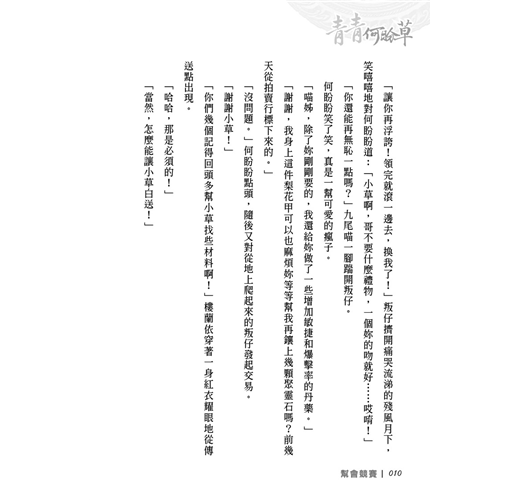 青青何盼草
「讓你再浮誇！領完就滾一邊去，換我了！」叛仔擠開痛哭流涕的殘風月下，
笑嘻嘻地對何盼盼道：「小草啊，哥不要什麼禮物，一個妳的吻就好……哎唷！」
「你還能再無恥一點嗎？」九尾喵一腳踹開叛仔。
何盼盼笑了笑，真是一幫可愛的瘋子。
「喵姊，除了妳剛剛要的，我還給妳做了一些增加敏捷和爆擊率的丹藥。」
「謝謝，我身上這件梨花甲可以也麻煩妳等等幫我再鑲上幾顆聚靈石嗎？前幾
天從拍賣行標下來的。」
「沒問題。」何盼盼點頭，隨後又對從地上爬起來的叛仔發起交易。
「謝謝小草！」
「你們幾個記得回頭多幫小草找些材料啊！」樓蘭依穿著一身紅衣耀眼地從傳
送點出現。
「哈哈，那是必須的！」
「當然，怎麼能讓小草白送！」
幫會競賽 | 010